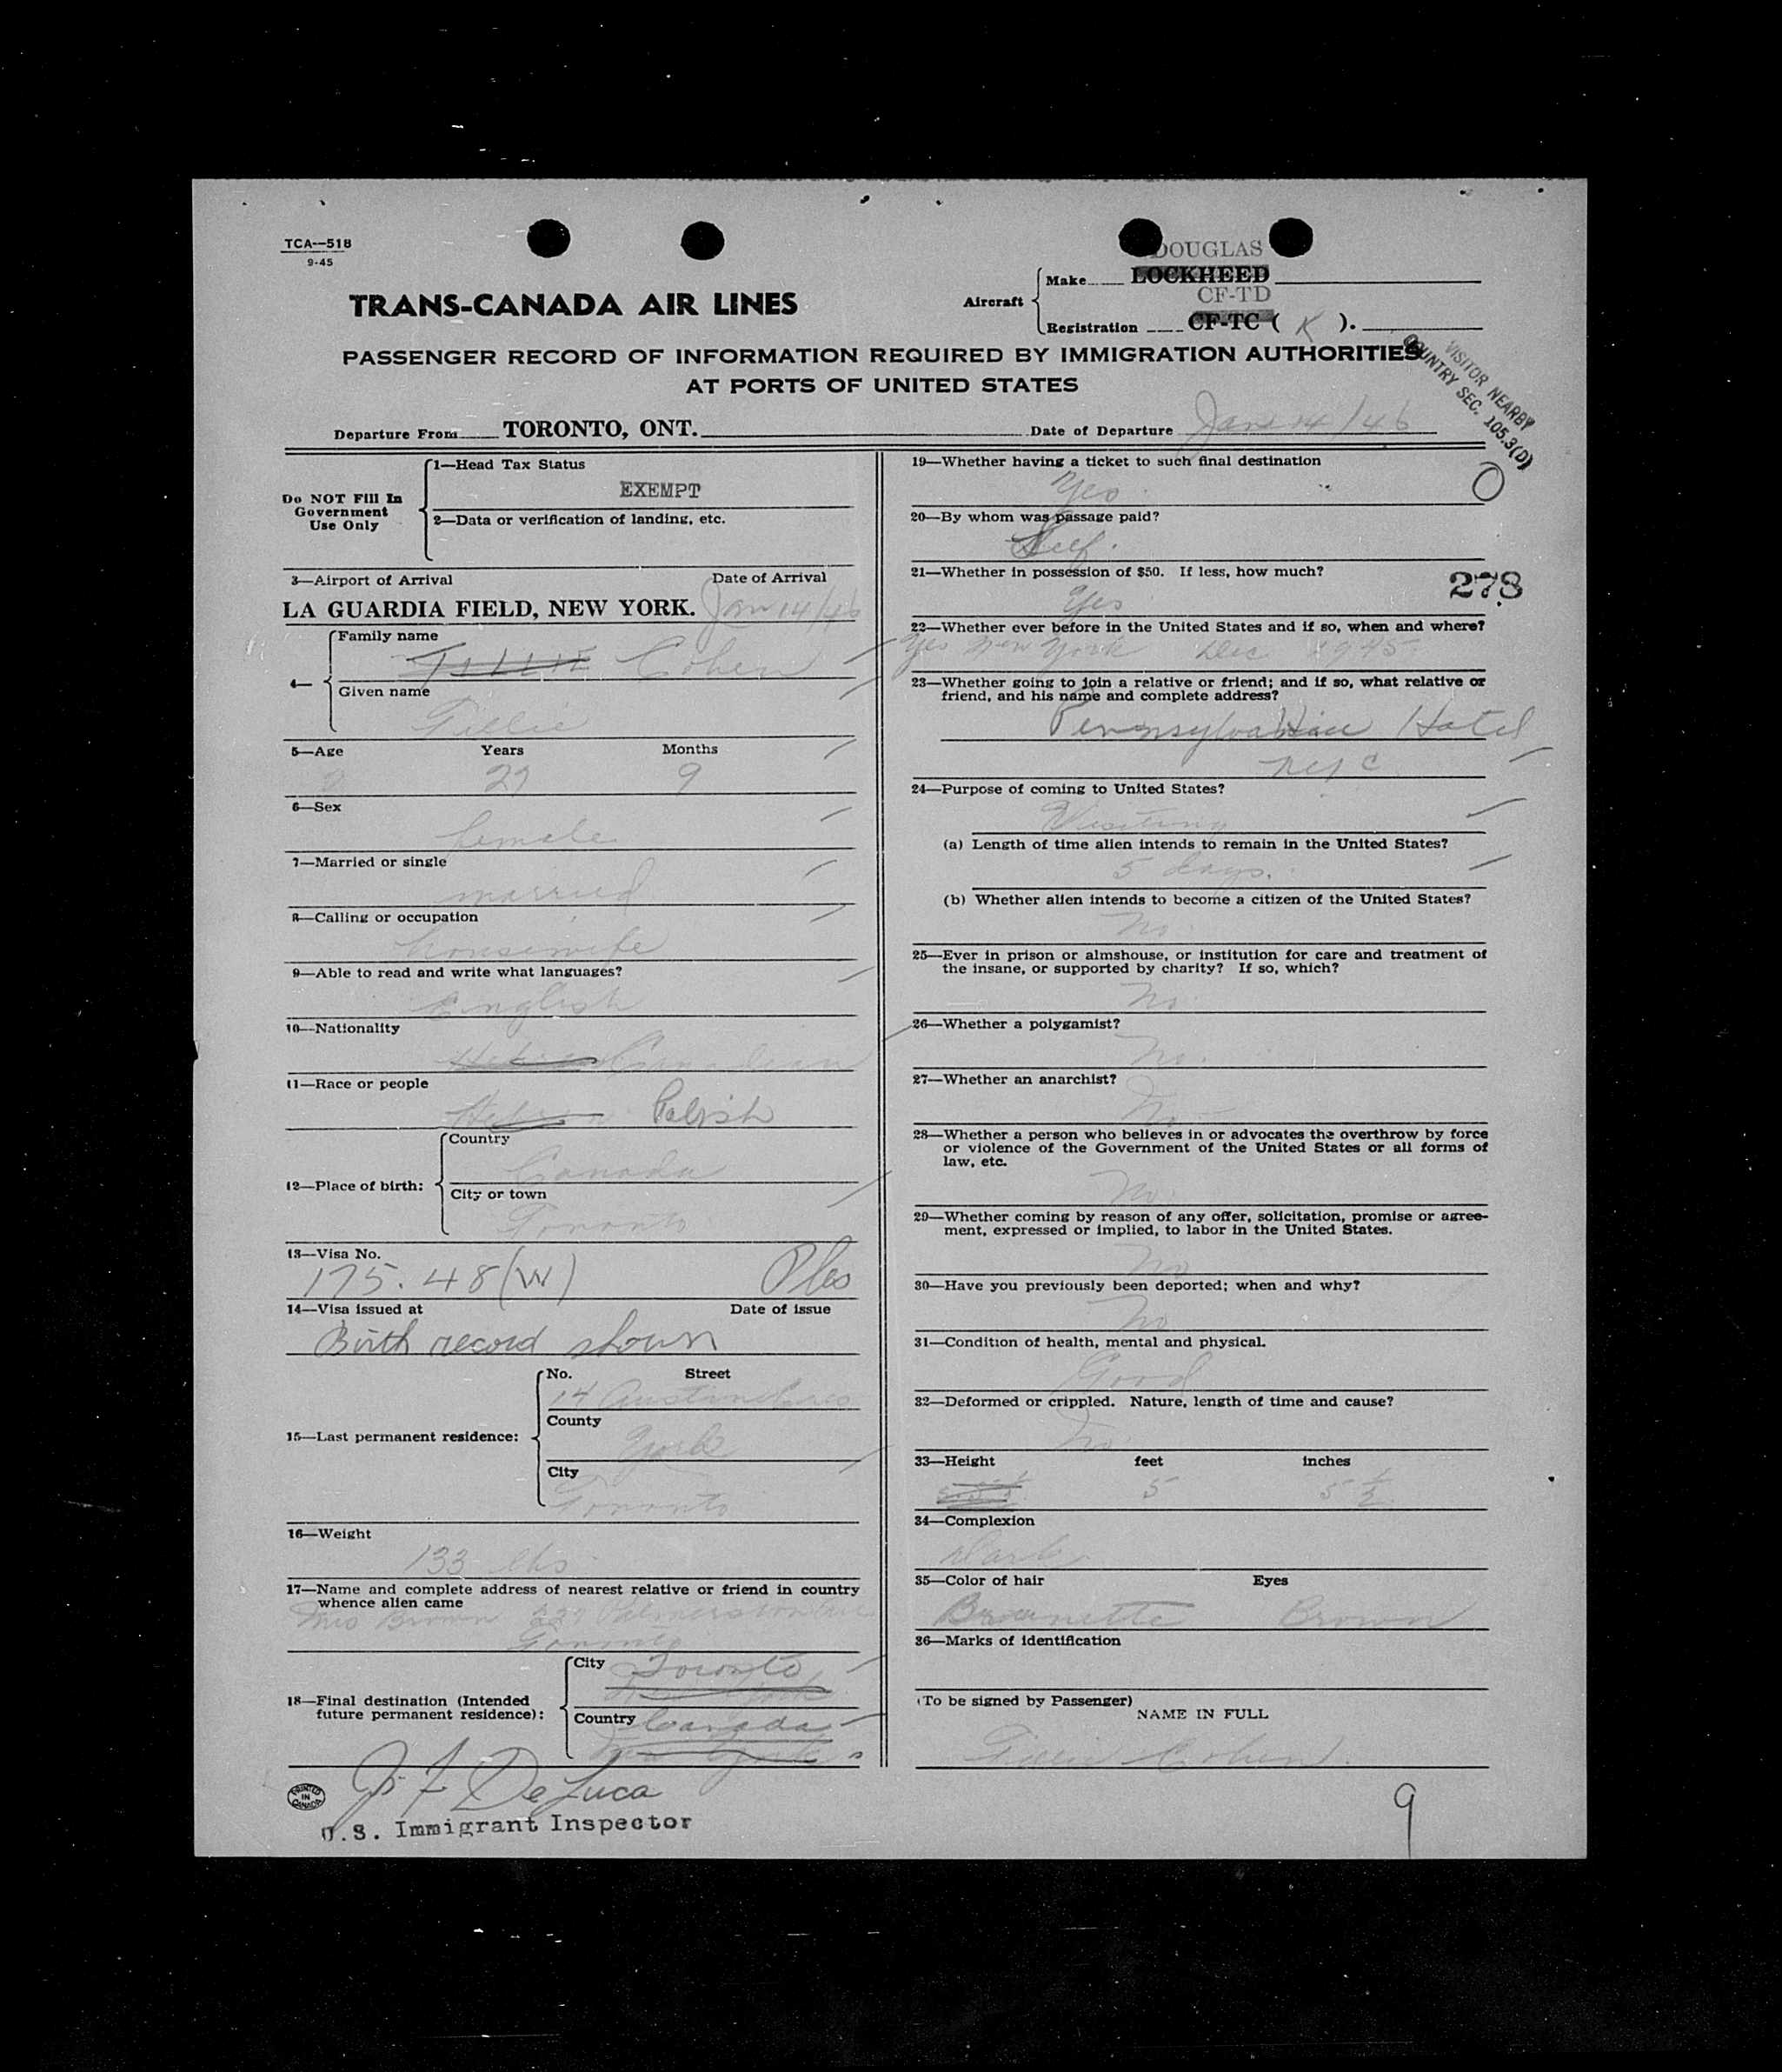 TCA—518
9-45
DOUGLAS
Aircraft
Make LOCKHEED
CF-TD
Registration CF-TC ( K ).
TRANS-CANADA AIR LINES
PASSENGER RECORD OF INFORMATION REQUIRED BY IMMIGRATION AUTHORITIES
AT PORTS OF UNITED STATES
VISITOR NEARBY
COUNTRY SEC. 105.3(D)
Departure From TORONTO, ONT. Date of Departure Jan 14/46
Do NOT Fill In
Government
Use Only
1—Head Tax Status
EXEMPT
2—Data or verification of landing, etc.
3—Airport of Arrival Date of Arrival
LA GUARDIA FIELD, NEW YORK. Jan 14/46
4—
Family name
TILLIE Cohen
Given name
Tillie
5—Age Years Months
27 9
6—Sex
female
7—Married or single
married
8—Calling or occupation
housewife
9—Able to read and write what languages?
English
10—Nationality
Canadian
11—Race or people
Polish
12—Place of birth:
Country
Canada
City or town
Toronto
13—Visa No.
175.48(W)
14—Visa issued at Date of issue
Birth record shown
15—Last permanent residence:
No. Street
14
County
York
City
Toronto
16—Weight
133 lbs
17—Name and complete address of nearest relative or friend in country
whence alien came
Mrs Brown Palmerston Ave
Toronto
18—Final destination (Intended
future permanent residence):
City Toronto
New York
Country Canada
New York
J. F. DeLuca
U.S. Immigrant Inspector
PRINTED IN CANADA
19—Whether having a ticket to such final destination
Yes
O
20—By whom was passage paid?
Self.
21—Whether in possession of $50. If less, how much?
Yes
278
22—Whether ever before in the United States and if so, when and where?
Yes New York Dec 1945
23—Whether going to join a relative or friend; and if so, what relative or
friend, and his name and complete address?
Hotel
NYC
24—Purpose of coming to United States?
Visiting
(a) Length of time alien intends to remain in the United States?
5 days.
(b) Whether alien intends to become a citizen of the United States?
No
25—Ever in prison or almshouse, or institution for care and treatment of
the insane, or supported by charity? If so, which?
No
26—Whether a polygamist?
No.
27—Whether an anarchist?
No
28—Whether a person who believes in or advocates the overthrow by force
or violence of the Government of the United States or all forms of
law, etc.
No.
29—Whether coming by reason of any offer, solicitation, promise or agree-
ment, expressed or implied, to labor in the United States.
No
30—Have you previously been deported; when and why?
No
31—Condition of health, mental and physical.
Good
32—Deformed or crippled. Nature, length of time and cause?
No
33—Height feet inches
5 5 1/2
34—Complexion
Dark
35—Color of hair Eyes
Brunette Brown
36—Marks of identification
(To be signed by Passenger)
NAME IN FULL
Tillie Cohen.
9